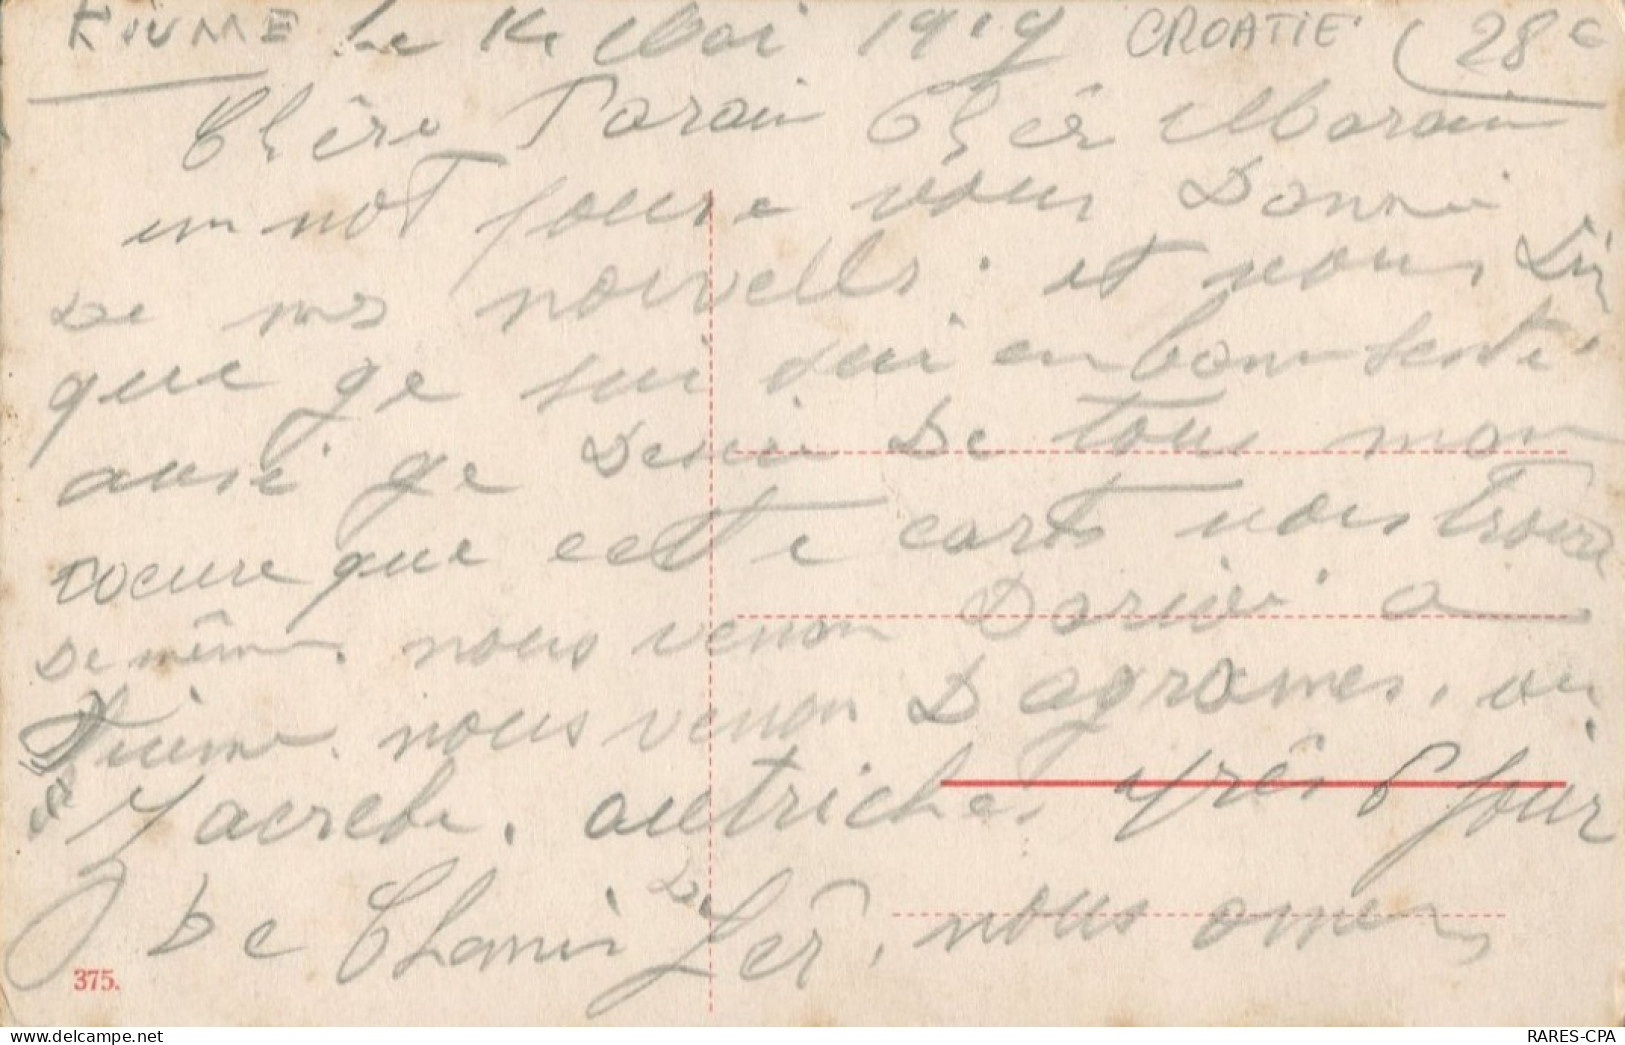 FIUME le 14 Mai 1919 CROATIE 28€
Chère Parain Chér Maraine
un mot pour vous Donnie
De mes nouvells. et vous Dir
que ge sui sui en bonn senté.
ausi ge Desir De tous mon
cœure que cette carte vous trouve
De même. nous venon Darivé a
Fiume. nous venon Dagrames. ou
Zacrebe. autriche. aprês 6 jour
De Chemin De Fer. nous omes
375.
RARES-CPA